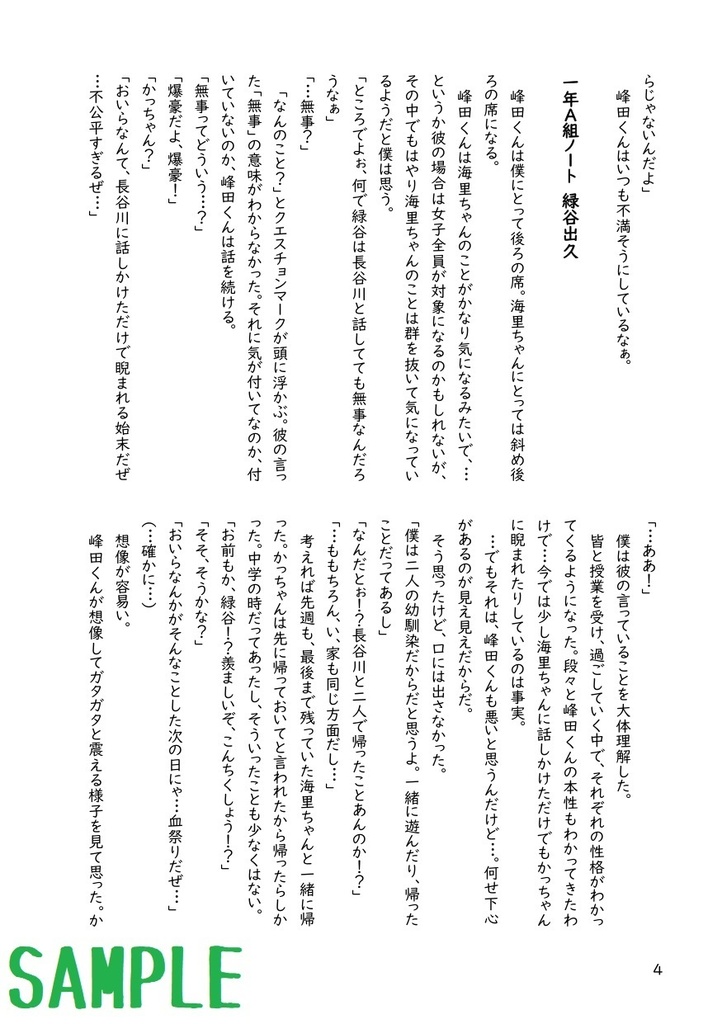 らじゃないんだよ」
　峰田くんはいつも不満そうにしているなぁ。
一年Ａ組ノート　緑谷出久
　峰田くんは僕にとって後ろの席。海里ちゃんにとっては斜め後
ろの席になる。
　峰田くんは海里ちゃんのことがかなり気になるみたいで、…
というか彼の場合は女子全員が対象になるのかもしれないが、
その中でもはやり海里ちゃんのことは群を抜いて気になってい
るようだと僕は思う。
「ところでよぉ、何で緑谷は長谷川と話してても無事なんだろ
うなぁ」
「…無事？」
　「なんのこと？」とクエスチョンマークが頭に浮かぶ。彼の言っ
た「無事」の意味がわからなかった。それに気が付いてなのか、付
いていないのか、峰田くんは話を続ける。
「無事ってどういう…？」
「爆豪だよ、爆豪！」
「かっちゃん？」
「おいらなんて、長谷川に話しかけただけで睨まれる始末だぜ
…不公平すぎるぜ…」
「…ああ！」
　僕は彼の言っていることを大体理解した。
　皆と授業を受け、過ごしていく中で、それぞれの性格がわかっ
てくるようになった。段々と峰田くんの本性もわかってきたわ
けで…今では少し海里ちゃんに話しかけただけでもかっちゃん
に睨まれたりしているのは事実。
　…でもそれは、峰田くんも悪いと思うんだけど…。何せ下心
があるのが見え見えだからだ。
　そう思ったけど、口には出さなかった。
「僕は二人の幼馴染だからだと思うよ。一緒に遊んだり、帰った
ことだってあるし」
「なんだとぉ！？長谷川と二人で帰ったことあんのか！？」
「…ももちろん、い、家も同じ方面だし…」
　考えれば先週も、最後まで残っていた海里ちゃんと一緒に帰
った。かっちゃんは先に帰っておいてと言われたから帰ったらしか
った。中学の時だってあったし、そういったことも少なくはない。
「お前もか、緑谷！？羨ましいぞ、こんちくしょう！？」
「そそ、そうかな？」
「おいらなんかがそんなことした次の日にゃ…血祭りだぜ…」
（…確かに…）
　想像が容易い。
　峰田くんが想像してガタガタと震える様子を見て思った。か
4
SAMPLE